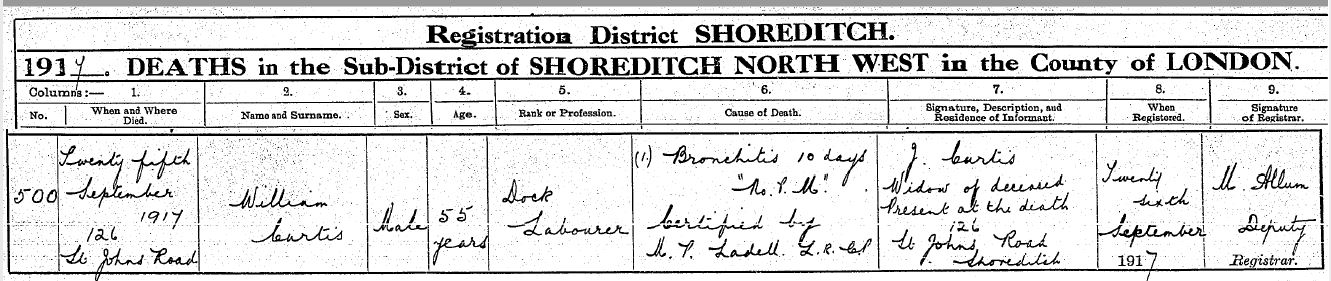 Registration District SHOREDITCH.
1917. DEATHS in the Sub-District of SHOREDITCH NORTH WEST in the County of LONDON.
Columns:— 1. 2. 3. 4. 5. 6. 7. 8. 9.
No. When and Where Died. Name and Surname. Sex. Age. Rank or Profession. Cause of Death. Signature, Description, and Residence of Informant. When Registered. Signature of Registrar.
500
Twenty fifth
September
1917
126
St Johns Road
William
Curtis
Male
55
years
Dock
Labourer
(1) Bronchitis 10 days
"No. P. M".
Certified by
M. P. Ladell. L.R.C.P
J. Curtis
Widow of deceased
Present at the death
126
St Johns Road
Shoreditch
Twenty
sixth
September
1917
M. Allum
Deputy
Registrar.